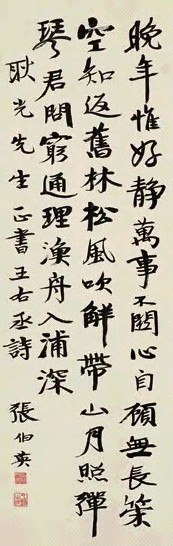 晚年惟好靜萬事不關心自顧無長策
空知返舊林松風吹解帶山月照彈
琴君問窮通理漁舟入浦深
耿光先生正書王右丞詩
張伯英